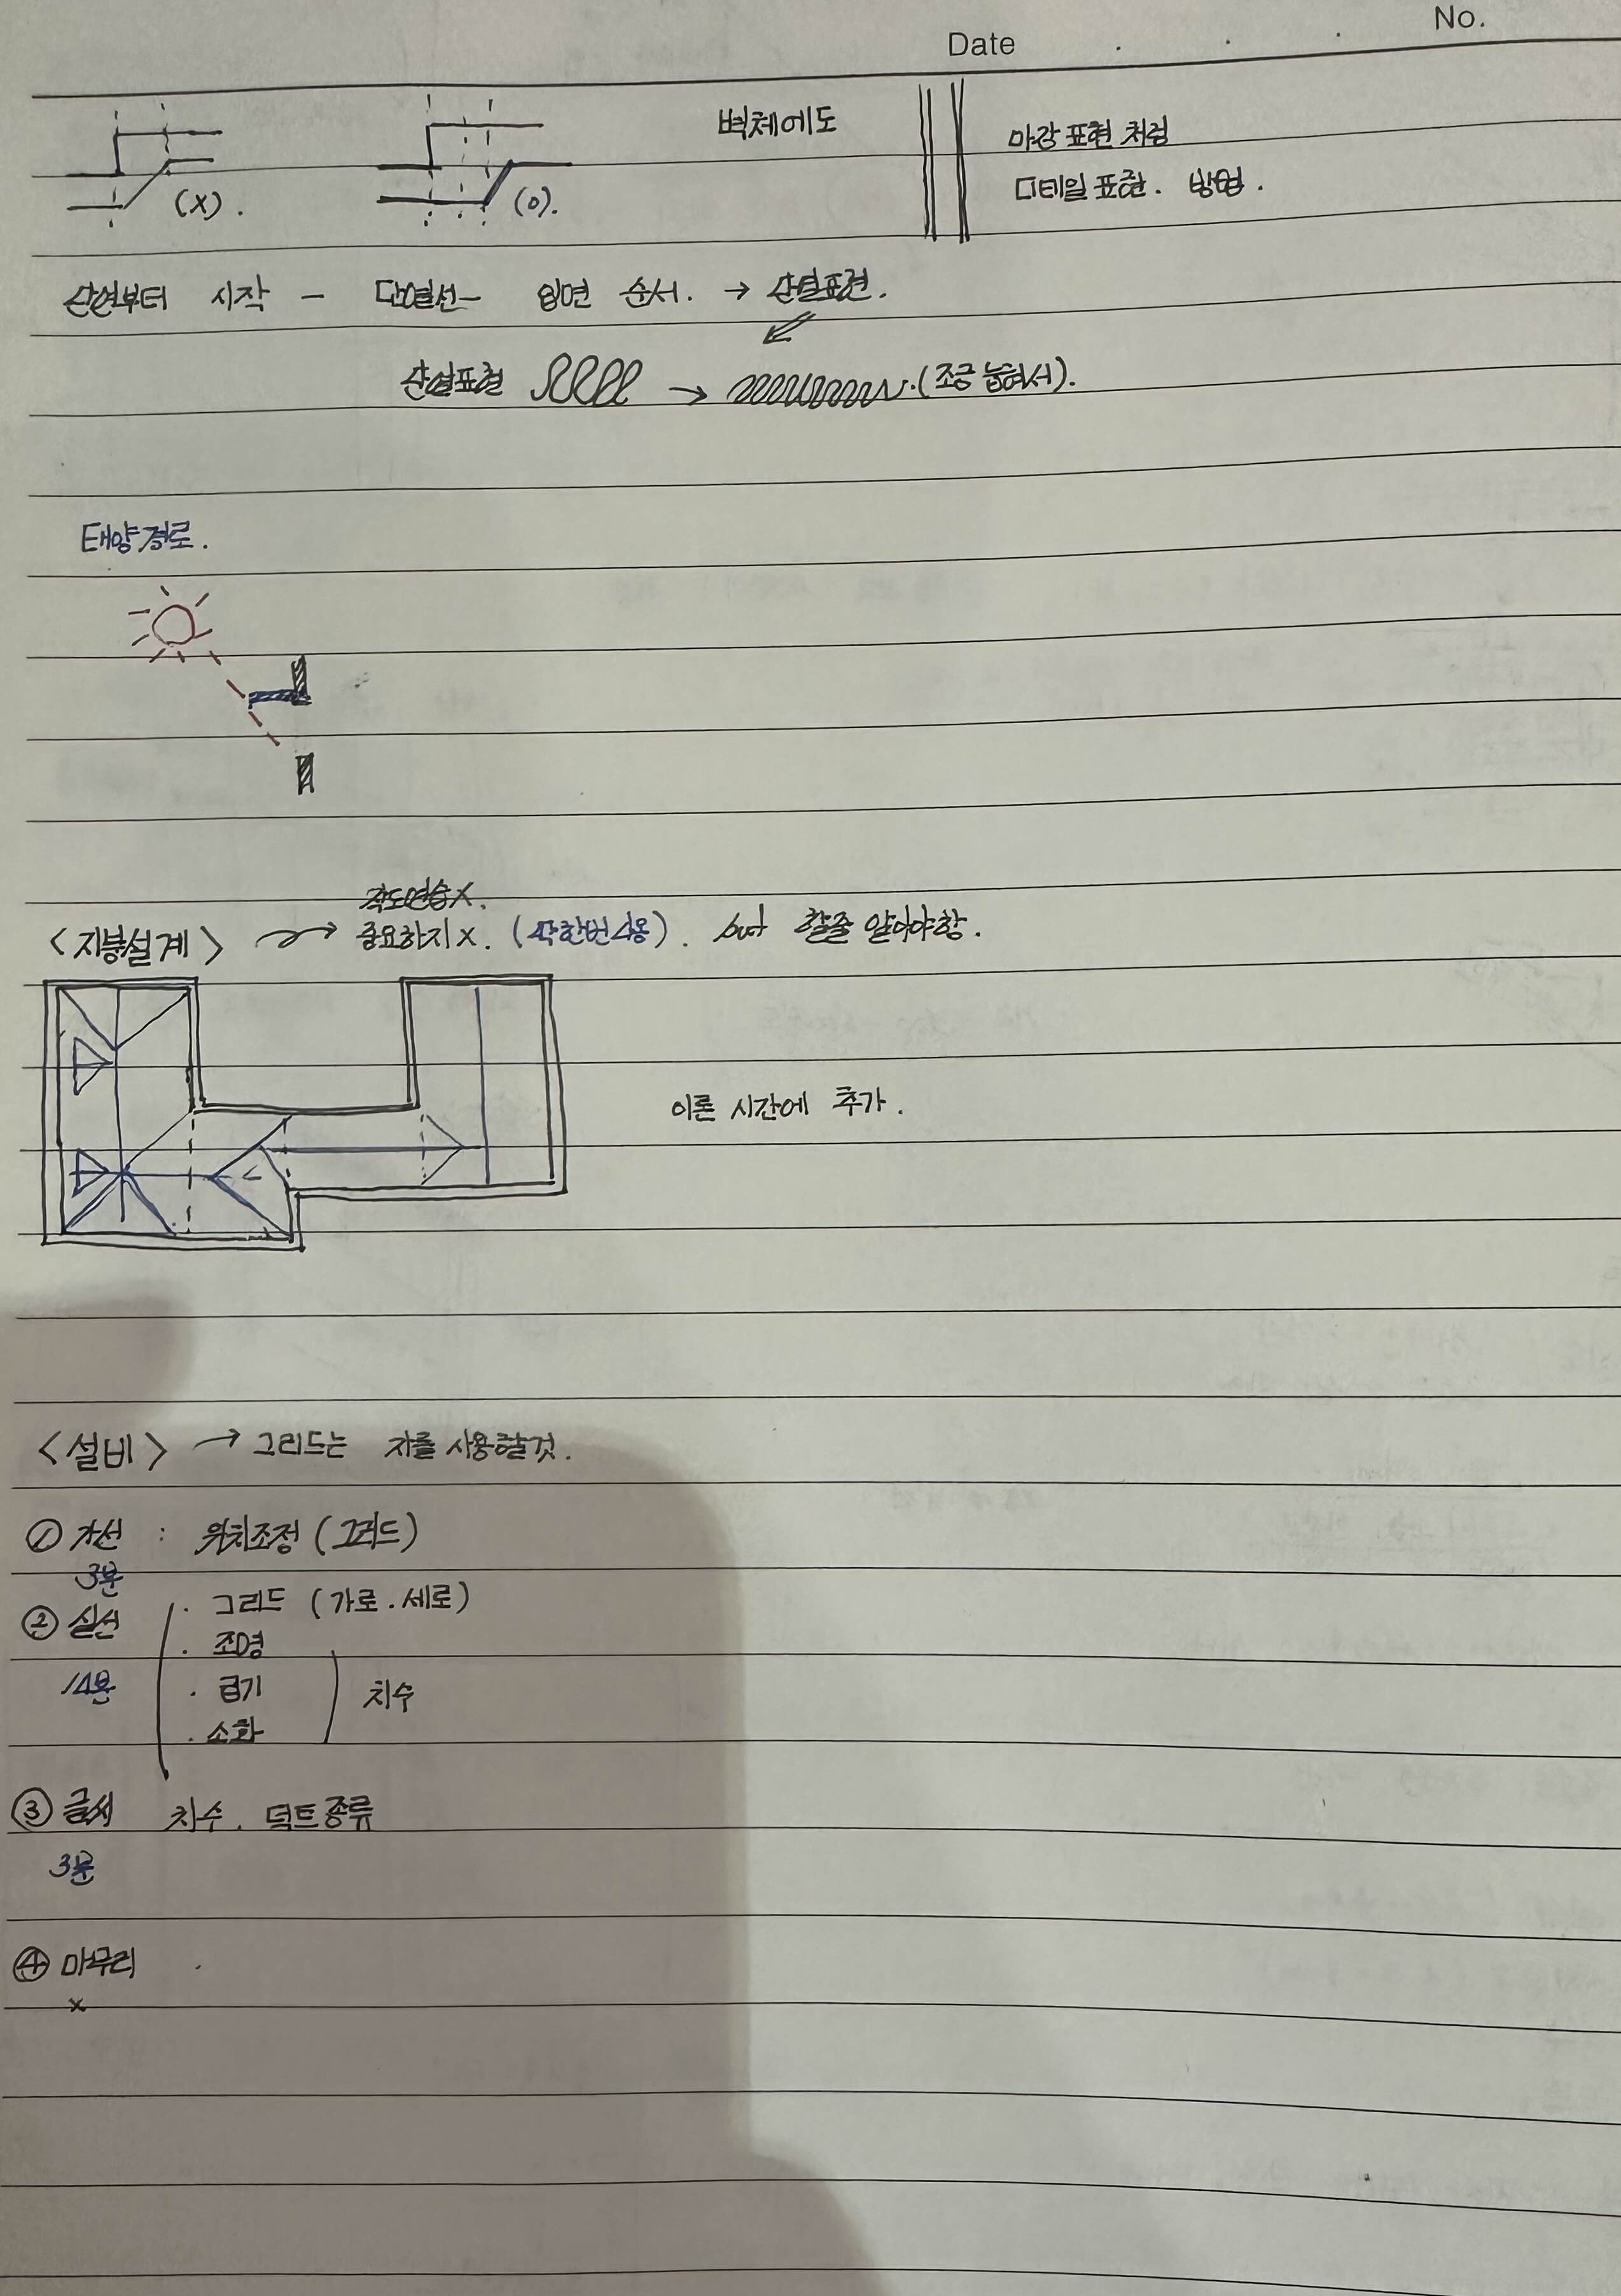 No.
Date
벽체에도
마감 표현 처럼
디테일 표현. 방법.
(X).
(O).
단열부터 시작 - 단열선 - 입면 순서. → 단열표현.
단열표현 → (조금 눕혀서).
태양경로.
작도연습X.
<지붕설계> → 중요하지X. (딱한번사용). but 할줄 알아야함.
이론 시간에 추가.
<설비> → 그리드는 자를 사용할것.
① 가선 : 위치조정 (그리드)
3분
② 실선 · 그리드 (가로.세로)
· 조명
14분 · 급기 치수
· 소화
③ 글씨 치수. 덕트종류
3분
④ 마무리
x